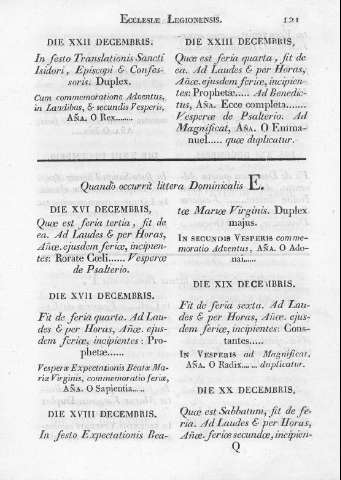 Ecclesiæ Legionensis. 121
DIE XXII DECEMBRIS.
In festo Translationis Sancti
Isidori, Episcopi & Confes-
soris. Duplex.
Cum commemoratione Adventus,
in Laudibus, & secundis Vesperis,
AÑA. O Rex........
DIE XXIII DECEMBRIS,
Quæ est feria quarta, fit de
ea. Ad Laudes & per Horas,
Añæ. ejusdem feriæ, incipien-
tes: Prophetæ..... Ad Benedic-
tus, AÑA. Ecce completa.......
Vesperæ de Psalterio. Ad
Magnificat, AÑA. O Emma-
nuel..... quæ duplicatur.
Quando occurrit littera Dominicalis E.
DIE XVI DECEMBRIS,
Quæ est feria tertia, fit de
ea. Ad Laudes & per Horas,
Añæ. ejusdem feriæ, incipien-
tes: Rorate Cœli...... Vesperæ
de Psalterio.
DIE XVII DECEMBRIS.
Fit de feria quarta. Ad Lau-
des & per Horas, Añæ. ejus-
dem feriæ, incipientes: Pro-
phetæ......
Vesperæ Expectationis Beatæ Ma-
riæ Virginis, commemoratio feriæ,
AÑA. O Sapientia.....
DIE XVIII DECEMBRIS.
In festo Expectationis Bea-
tæ Mariæ Virginis. Duplex
majus.
In secundis Vesperis comme-
moratio Adventus, AÑA. O Ado-
nai......
DIE XIX DECEMBRIS.
Fit de feria sexta. Ad Lau-
des & per Horas, Añæ. ejus-
dem feriæ, incipientes: Cons-
tantes.....
In Vesperis ad Magnificat,
AÑA. O Radix...... duplicatur.
DIE XX DECEMBRIS,
Quæ est Sabbatum, fit de fe-
ria. Ad Laudes & per Horas,
Añæ. feriæ secundæ, incipien-
Q